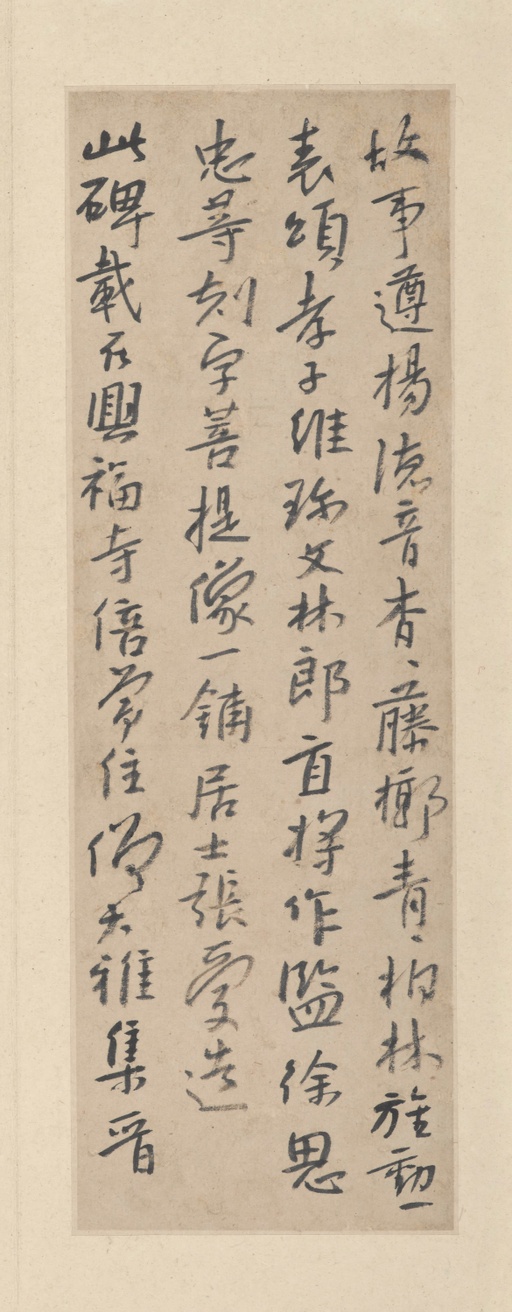 故事遵揚德音杳〻藤槨青〻柏林旌勳
表頌孝子維珎文林郎直將作監徐思
忠等刻字菩提像一鋪居士張愛造
此碑載在興福寺倍常住僧大雅集晋